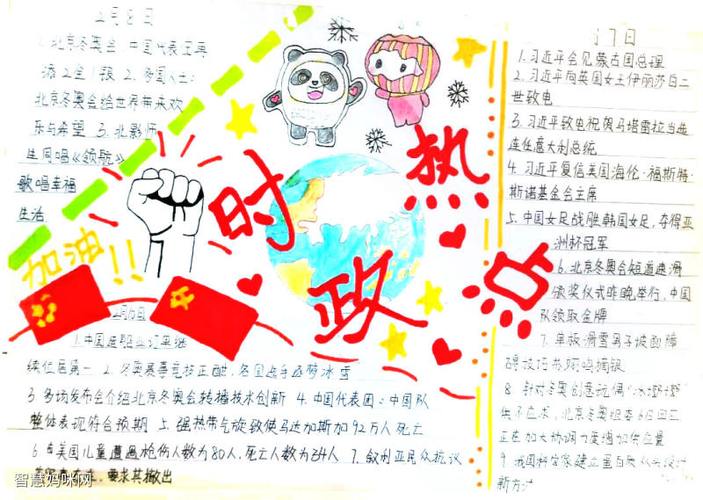 2月8日
1.北京冬奥会 中国代表王冥
添2金1银 2.多国人士:
北京冬奥会给世界带来欢
乐与希望 3.北影师
生同唱《领航》
歌唱幸福
生活.
加油!!
时政热点
1.中国造船业订单继
续位居第一 2.冬奥赛事竞技正酣,各国选手逐梦冰雪
3.多场发布会介绍北京冬奥会转播技术创新 4.中国代表团:中国队
整体表现符合预期 5.强热带气旋致使马达加斯加92万人死亡
6.美国儿童遭遇枪伤人数为80人,死亡人数为24人 7.叙利亚民众抗议
要求其撤出
17日
1.习近平会见蒙古国总理
2.习近平向英国女王伊丽莎白二
世致电
3.习近平致电祝贺马塔雷拉当选
连任意大利总统
4.习近平复信美国海伦·福斯特·
斯诺基金会主席
5.中国女足战胜韩国女足,夺得亚
洲杯冠军
6.北京冬奥会短道速滑
颁奖仪式昨晚举行,中国
队领取金牌
7.单板滑雪男子坡面障
碍技巧苏翊鸣摘银
8.针对冬奥创意玩偶"冰墩墩"
供不应求,北京冬奥组委6日回应
正在加大协调力度增加供应量
9.我国科学家建立蛋白质从头设计
新方法
智慧妈咪网